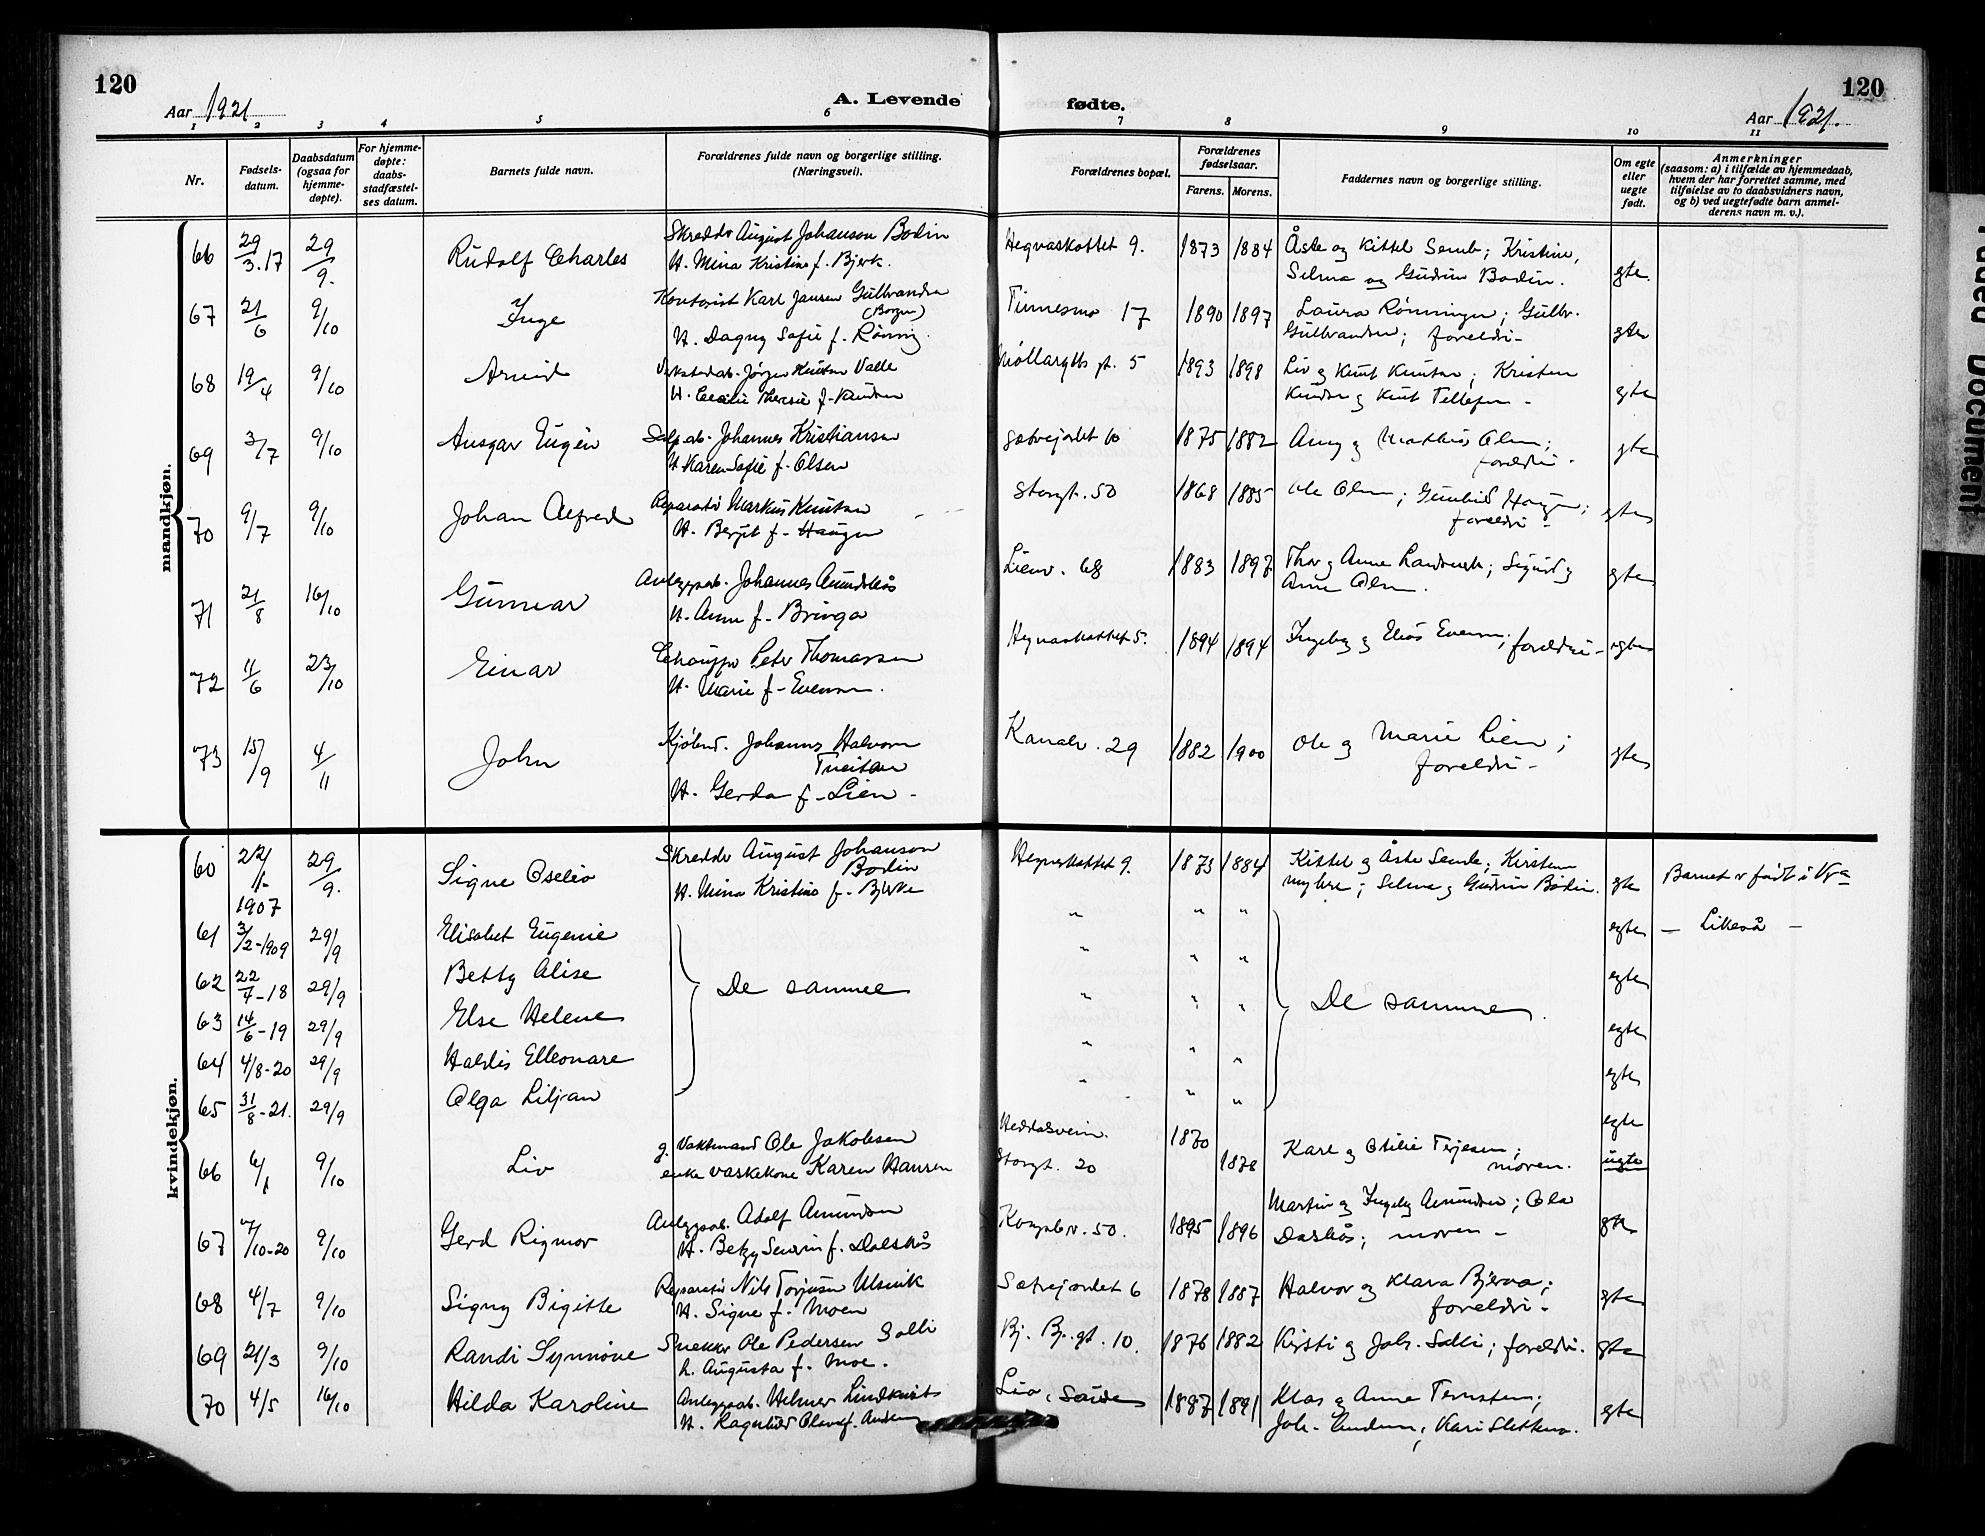 120
Aar 1921
A. Levende
fødte.
120
Aar 1921.
1 2 3 4 5 6 7 8 9 10 11
Nr.
Fødsels-
datum.
Daabsdatum
(ogsaa for
hjemme-
døpte).
For hjemme-
døpte:
daabs-
stadfæstel-
ses datum.
Barnets fulde navn.
Forældrenes fulde navn og borgerlige stilling.
(Næringsvei).
Forældrenes bopæl.
Forældrenes
fødselsaar.
Farens. Morens.
Faddernes navn og borgerlige stilling.
Om egte
eller
uegte
født.
Anmerkninger
(saasom: a) i tilfælde av hjemmedaab,
hvem der har forrettet samme, med
tilføielse av to daabsvidners navn,
og b) ved uegtefødte barn anmel-
derens navn m. v.).
mandkjøn.
66 29/3.17 29/9. Rudolf Charles
Skredder August Johanson Bodin
H. Mina Kristine f. Bjerk.
Hegnaskottet 9. 1873 1884
Åste og Kittel Semb; Kristine,
Selma og Gudrun Bodin.
gte.
67 21/6 9/10 Inge
Kontorist Karl Jansen Gulbrandsen
(Borgen)
H. Dagny Sofie f. Rønning.
Tinnesmo 17 1890 1897
Laura Rønningen; Gulbr.
Gulbrandsen; foreldri-
gte
68 19/4 9/10 Arvid
Jørgen Knutsen Valle
H. Cecilie Therese f. Knudsen
Møllargts gt. 5 1893 1898
Liv og Knut Knutsen; Kristen
Knudsen og Knut Tellefsen -
egte
69 3/7 9/10 Ansgar Eugén
Salp.ab. Johannes Kristiansen
H. Karen Sofie f. Olsen
Sætrejordet 10 1875 1882
Anny og Mathias Olsen;
foreldri -
gte
70 9/7 9/10 Johan Alfred
Reparatør Markus Knutsen
H. Bergit f. Haugen
Storgt. 50 1868 1885
Ole Olsen; Gunhild Haugen;
foreldri -
egte
71 21/8 16/10 Gunnar
Anleggsab. Johannes Amundsås
H. Anne f. Bringa
Lienv. 68 1883 1897
Thor og Anne Landsverk; Sigurd og
Anne Olsen.
egte
72 11/6 23/10 Einar
Chauffør Peter Thomassen
H. Marie f. Evensen.
Hegnaskottet 5. 1894 1894
Ingeborg og Eliås Evensen; foreldri -
egte
73 15/9 4/11 John
Kjøbmd. Johannes Halvorsen
Tveitan
H. Gerda f. Lien -
Kanalv. 29 1882 1900
Ole og Marie Lien;
foreldri -
gte
kvindekjøn.
60 22/1- 1907 29/9. Signe Oselie
Skredder August Johanson
Bodin
H. Mina Kristine f. Bjerke
Hegnaskottet 9. 1873 1884
Kittel og Åste Semb; Kirsten
Myhre; Selma og Gudrun Bodin.
gte
Barnet er født i
61 3/2-1909 29/9 Elisabet Eugenie
" " "
egte
— Likeså —
62 22/4-18 29/9 Betty Alise
" " "
egte
De samme
De samme.
63 14/6-19 29/9 Else Helene
" " "
egte
64 4/8-20 29/9 Haldis Elleonare
" " "
egte
65 31/8-21. 29/9 Olga Liljan
" " "
egte
66 6/1 9/10 Liv
g. Vaktmand Ole Jakobsen
enke vaskekone Karen Hansen
Heddalsveien.
Storgt. 20
1870
1878
Karl og Otilie Terjesen;
moren.
uegte
67 7/10-20 9/10 Gerd Rigmor
Anleggsab. Adolf Amundsen
H. Betzy Severin f. Dalsbøs
Kongsbr. 50. 1895 1896
Martin og Ingeborg Amundsen; Ola
Dasbøs; moren -
gte
68 4/7 9/10 Signy Bigitte
Reparatør Nils Torjusen Ulsnik
H. Signe f. Moen
Sætrejordet 6 1878 1887
Halvor og Klara Bjerva;
foreldri -
gte
69 21/3 9/10 Randi Synnøve
Snekker Ole Pedersen Solli
h. Augusta f. Moe.
Bj. Bj. gt. 10. 1876 1882
Kirsti og Joh. Solli; foreldri.
gte
70 4/5 16/10 Hilda Karoline
Anleggsab. Helmer Lindkvist
H. Ragnhild Olava f. Andersen
Lia, Saude 1887 1891
Klas og Anne Ternsten;
Joh. Knudsen, Kari Slettene.
gte